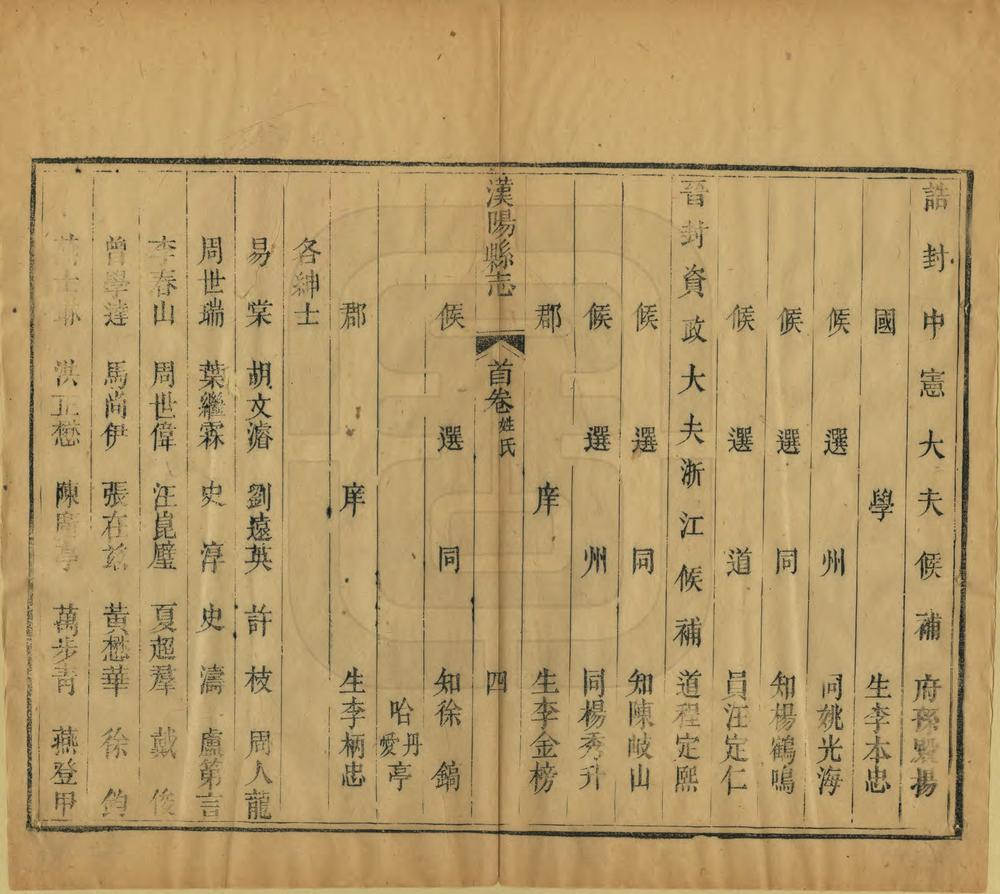 誥封中憲大夫候補府孫毀揚
國學生李本忠
候選州同姚光海
候選同知楊鶴鳴
候選道員汪定仁
晉封資政大夫浙江候補道程定熙
候選同知陳岐山
候選州同楊秀升
郡庠生李金榜
漢陽縣志 首卷 姓氏 四
候選同知徐鎬
哈丹愛亭
郡庠生李柄忠
各紳士
易棠 胡文濬 劉遠英 許枝 周人龍
周世瑞 葉繼霖 史淳 史濤 盧第言
李春山 周世偉 汪崑璧 夏超羣 戴俊
曾學達 馬尚伊 張在兹 黃懋華 徐鈞
士琳 洪正懋 陳慶亭 萬步青 燕登甲